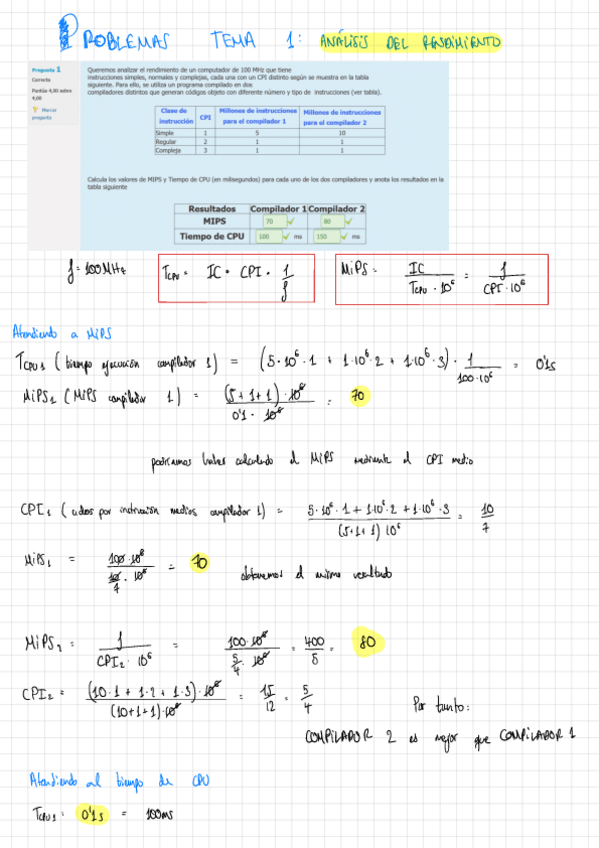 PROBLEMAS TEMA 1: ANÁLISIS DEL RENDIMIENTO
Pregunta 1
Correcta
Puntúa 4,00 sobre
4,00
Marcar
pregunta
Queremos analizar el rendimiento de un computador de 100 MHz que tiene
instrucciones simples, normales y complejas, cada una con un CPI distinto según se muestra en la tabla
siguiente. Para ello, se utiliza un programa compilado en dos
compiladores distintos que generan códigos objeto con diferente número y tipo de instrucciones (ver tabla).
Clase de instrucción CPI Millones de instrucciones para el compilador 1 Millones de instrucciones para el compilador 2
Simple 1 5 10
Regular 2 1 1
Compleja 3 1 1
Calcula los valores de MIPS y Tiempo de CPU (en milisegundos) para cada uno de los dos compiladores y anota los resultados en la
tabla siguiente
Resultados Compilador 1 Compilador 2
MIPS 70 80
Tiempo de CPU 100 ms 150 ms
f = 100 MHz
TCPU = IC · CPI · 1/f
MIPS = IC / TCPU · 10^6 = f / CPI · 10^6
Atendiendo a MIPS
TCPU1 (tiempo ejecución compilador 1) = (5 · 10^6 · 1 + 1 · 10^6 · 2 + 1 · 10^6 · 3) · 1 / 100 · 10^6 = 0'1s
MIPS1 (MIPS compilador 1) = (5 + 1 + 1) · 10^6 / 0'1 · 10^6 = 70
podríamos haber calculado el MIPS mediante el CPI medio
CPI1 (ciclos por instrucción medios compilador 1) = 5 · 10^6 · 1 + 1 · 10^6 · 2 + 1 · 10^6 · 3 / (5 + 1 + 1) 10^6 = 10/7
MIPS1 = 100 · 10^6 / 10/7 · 10^6 = 70
obtenemos el mismo resultado
MIPS2 = f / CPI2 · 10^6 = 100 · 10^6 / 5/4 · 10^6 = 400/5 = 80
CPI2 = (10 · 1 + 1 · 2 + 1 · 3) · 10^6 / (10 + 1 + 1) · 10^6 = 15/12 = 5/4
Por tanto:
COMPILADOR 2 es mejor que COMPILADOR 1
Atendiendo al tiempo de CPU
TCPU1: 0'1s = 100ms